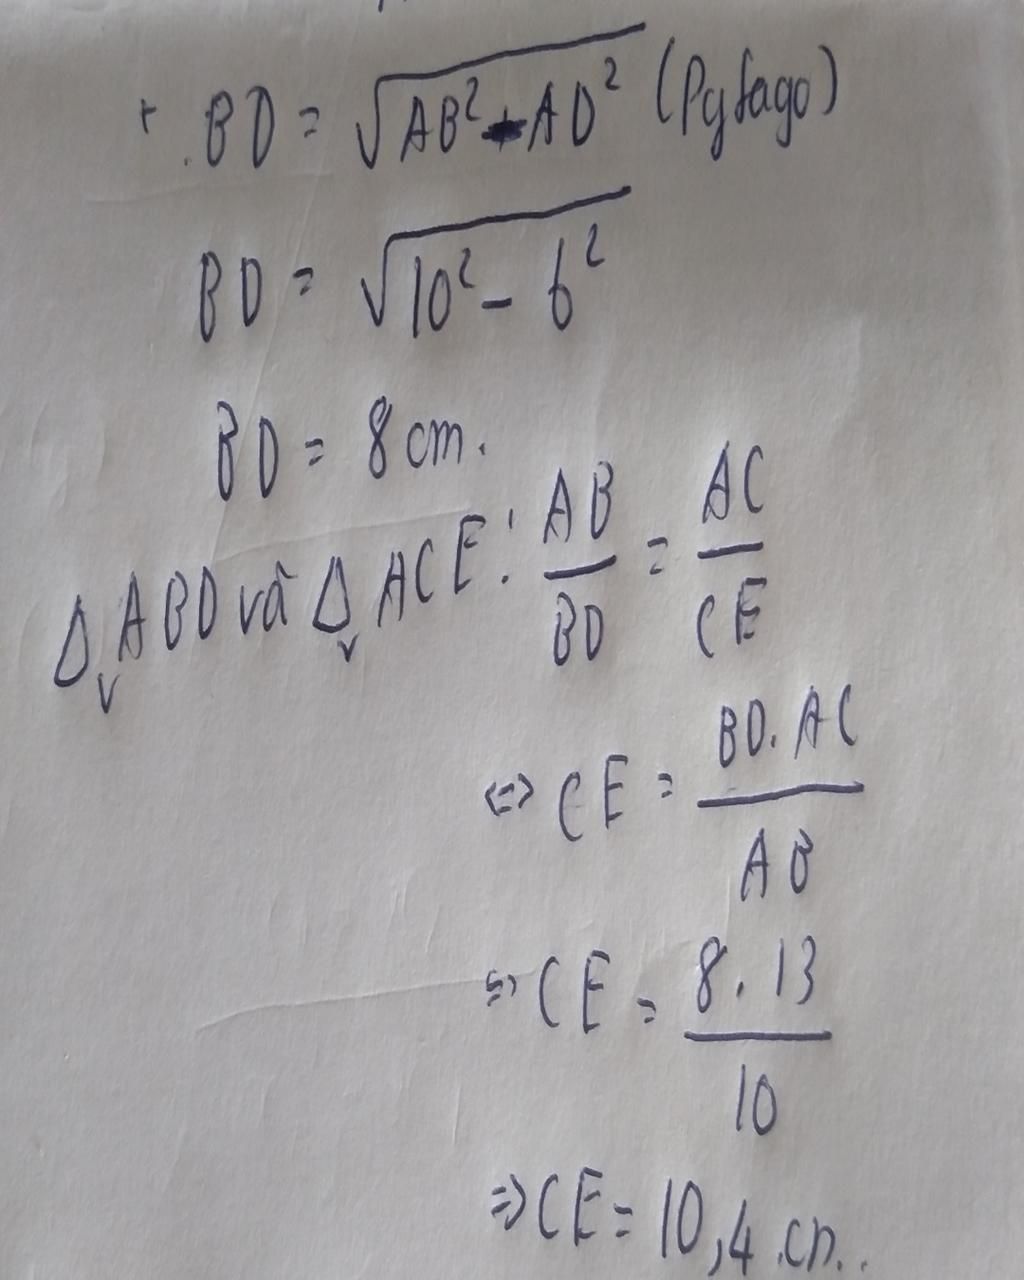 + BD = √AB² - AD² (Pytago)
BD = √10² - 6²
BD = 8 cm.
Δv ABD và Δv ACE: AB/BD = AC/CE
<=> CE = BD.AC/AB
=> CE = 8.13/10
=> CE = 10,4 cm..